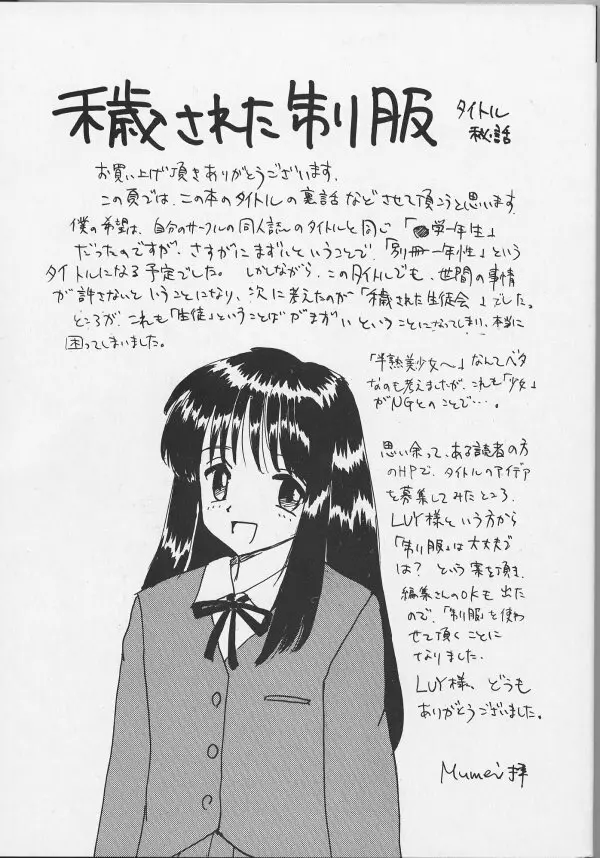 穢された制服
タイトル
秘話
お買い上げ頂きありがとうございます。
この頁では、この本のタイトルの裏話などさせて頂こうと思います
僕の希望は、自分のサークルの同人誌のタイトルと同じ「●学一年生」
だったのですが、さすがにまずいということで「別冊一年性」という
タイトルになる予定でした。しかしながら、このタイトルでも、世間の事情
が許さないということになり、次に考えたのが「穢された生徒会」でした。
ところが、これも「生徒」ということばがまずいということになってしまい、本当に
困ってしまいました。
「半熟美少女へ」なんてベタ
なのも考えましたが、これも「少女」
がNGとのことで…。
思い余って、ある読者の方
のHPで、タイトルのアイデア
を募集してみたところ、
LUY様という方から
「制服」は大丈夫で
は？という案を頂き、
編集さんのOKも出た
ので、「制服」を使わ
せて頂くことに
なりました。
LUY様、どうも
ありがとうございました。
Mumei 拝